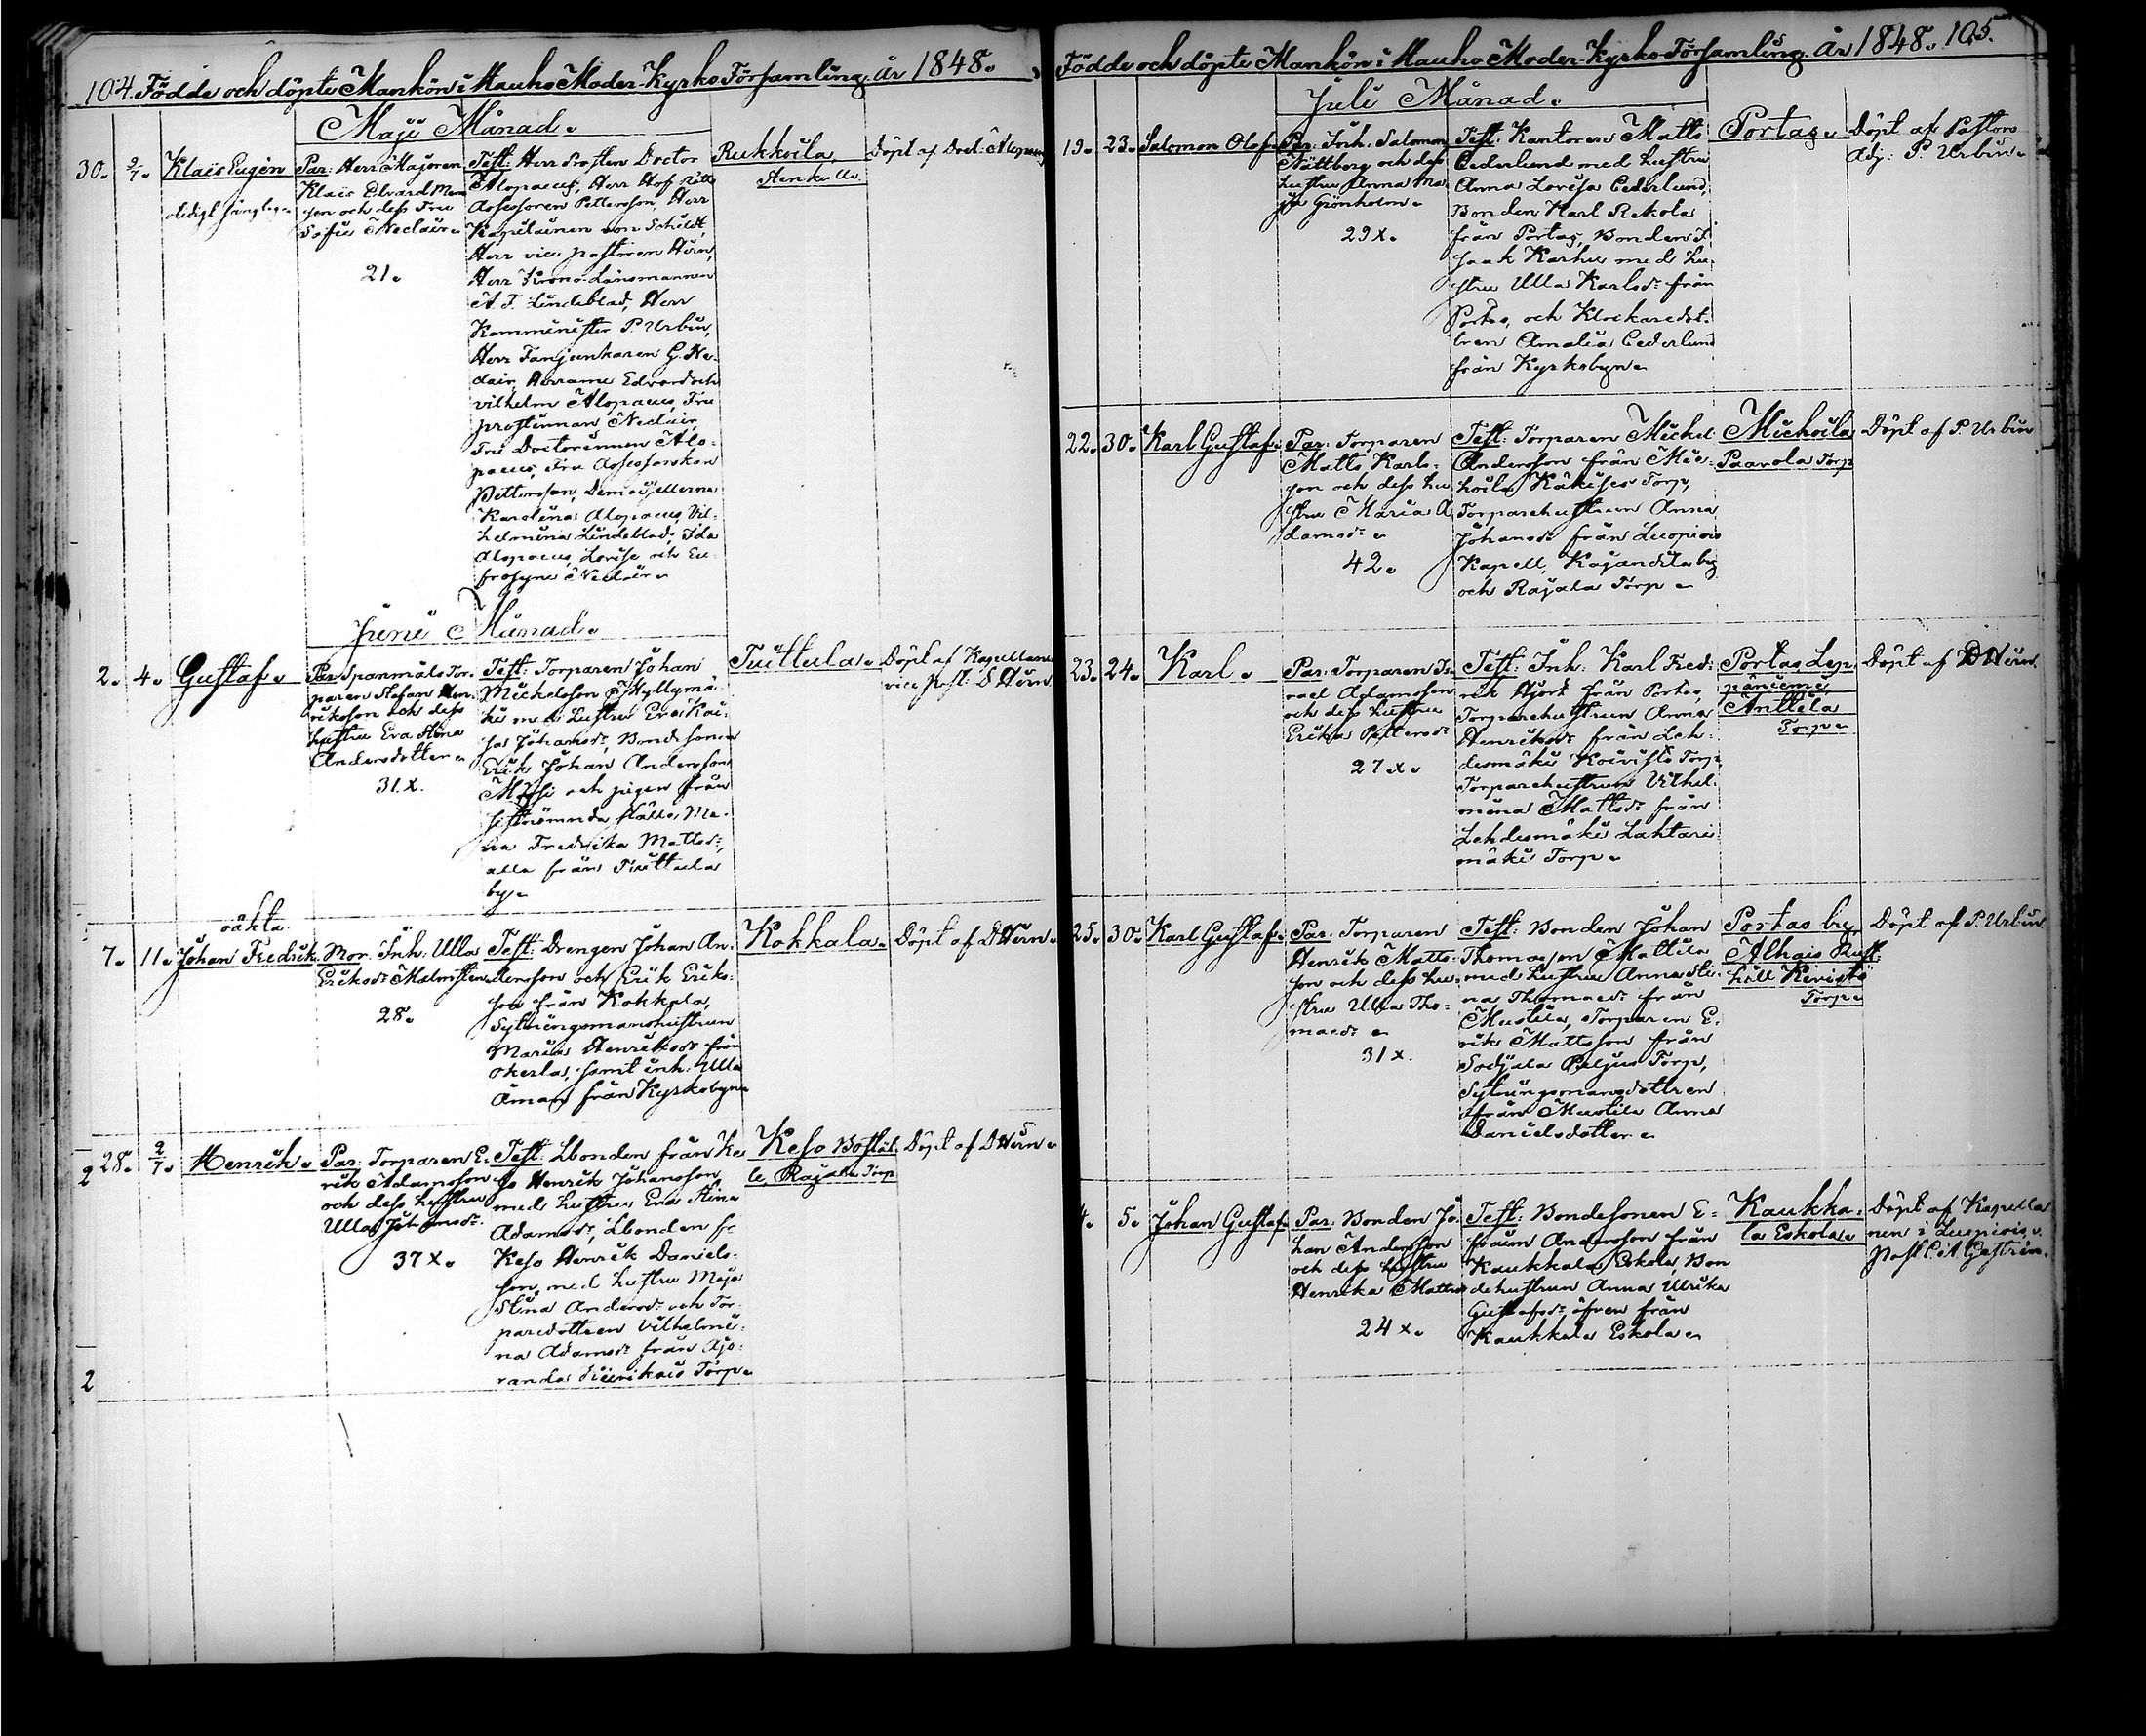 104. Födde och döpte Mankön i Hauho Moder-Kyrko Församling år 1848.
Maji Månad.
30. 2/7. Klaës Eugén
Par: Herr Majoren
Klaës Edvard
son och dess Fru
Sofia Neclair.
21.
Test: Herr Prosten Doctor
Alopaeus, Herr Hof Rätts
Assessoren Pettersson, Herr
Kapitainen von Schildt,
Herr vice pastoren Hérn,
Herr Krono-Länsmannen
A F. Lindeblad, Herr
Kommnister P. Urbin,
Herr Fanjunkaren G. Ne-
clair, Herrarne Edvard och
vilhelm Alopaeus, Fru
prostinnan Neclair,
Fru Doctorinnan Alo-
paeus, Fru Assessorskan
Pettersson, Demoisellerna
Karolina Alopaeus, Vil-
helmina Lindeblad, Ida
Alopaeus, Lovise och Eu-
frosyne Neclair.
Rukkoila,
Döpt af Doct: Alopaeus
Juni Månad.
2. 4. Gustaf.
Par: Spanmåls Tor-
paren Stefan Hen-
riksson och dess
hustru Eva Stina
Andersdotter.
31 x.
Test: Torparen Johan
Michelsson Myllymä-
ki med hustru Eva Kai-
sa Johansdr, Bondesonen
Erik Johan Andersson
och pigan från
sistnämnda ställe, Ma-
ria Fredrika Mattsdr,
alla från Tuittula
by.
Tuittula.
Döpt af Kapellanen
vice Past: D Hérn.
oäkta
7. 11. Johan Fredrik.
Mor. Inh: Ulla
Eriksdr Malmsten.
28.
Test: Drengen Johan An-
dersson och Erik Eriks-
son från Kokkala,
Sytningsmanshustrun
Maria Henriksdr från
Okerla, samt inh: Ulla
Åman från Kyrkobyn.
Kokkala.
Döpt af D Hérn.
2 28. 2/7. Henrik.
Par: Torparen E-
rik Adamsson
och dess hustru
Ulla Johansdr.
37 x.
Test: Lbonden från Ke-
so Henrik Johansson
med hustru Eva Stina
Adamsdr, Lbonden fr
Keso Henrik Daniels-
son, med hustru Maja
Stina Andersdr och Tor-
paredottren Vilhelmi-
na Adamsdr från Ajo-
randa Torp.
Keso Boställ-
le, Rajala Torp
Döpt af D Hérn.
2
Födde och döpte Mankön i Hauho Moder-Kyrko Församling. År 1848. 105.
Juli Månad.
19. 23. Salomon Olof.
Par: Inh. Salomon
Nättberg och dess
hustru Anna Ma-
ja Grönholm.
29 x.
Test: Kantoren Matts
Cederlund med hustru
Anna Lovisa Cederlund,
Bonden Karl Rekola
från Portas, Bonden I-
saak Karhu med hu-
stru Ulla Karlsdr från
Portas, och Klockaredot-
tren Amalia Cederlund
från Kyrkobyn.
Portas.
Döpt af Pastors
Adj: P. Urbin.
22. 30. Karl Gustaf.
Par: Torparen
Matts Karls-
son och dess hu-
stru Maria A-
damsdr.
42.
Test: Torparen Michel
Andersson från Mie-
hoila Torp,
Torparehustrun Anna
Johansdr från Luopiois
Kapell, Kajandila by
och Rajala Torp.
Miehoila
Paavola Torp
Döpt af P. Urbin
23. 24. Karl.
Par: Torparen Is-
rael Adamsson
och dess hustru
Erika Pettersdr
27 x.
Test: Inh: Karl Fred-
rik Hjort från Portas,
Torparehustrun Anna
Henriksdr från Leh-
desmäki Koivisto Torp
Torparehustrun Vilhel-
mina Mattsdr från
Lehdesmäki Lahtari-
mäki Torp.
Portas Lep-
päniemi
Anttila
Torp.
Döpt af D Hérn.
25. 30. Karl Gustaf.
Par: Torparen
Henrik Matts-
son och dess hu-
stru Ulla Tho-
maedr.
31 x.
Test: Bonden Johan
Thomasson Mattila
med hustru Anna Sti-
na Thomaedr från
Mustila, Torparen E-
rik Mattsson från
Sodjala Paljus Torp,
Sytningsmansdottren
från Mustila Anna
Danielsdotter.
Portas by
Alhais Rust-
håll Kivistö
Torp.
Döpt af P. Urbin
4. 5. Johan Gustaf.
Par: Bonden Jo-
han Andersson
och dess hustru
Henrika Mattsdr
24 x.
Test: Bondesonen E-
fraim Andersson från
Kaukkala Eskola, Bon-
dehustrun Anna Ulrika
Gustafsdr äfven från
Kaukkala Eskola.
Kaukka-
la Eskola.
Döpt af Kapella-
nen i Luopiois, v.
Past. C A Gestrin.